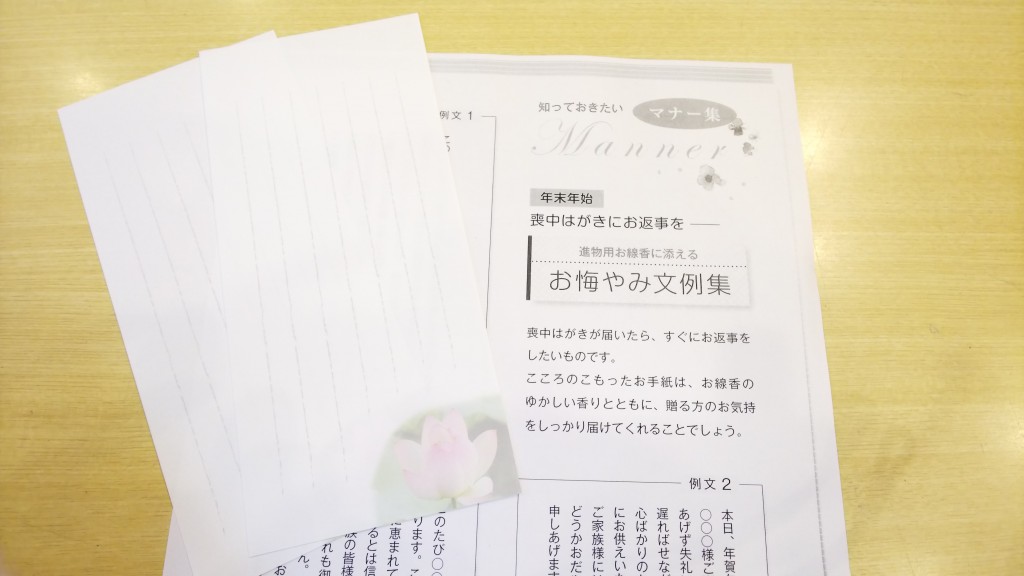 知っておきたい マナー集
Manner
年末年始
喪中はがきにお返事を
進物用お線香に添える
お悔やみ文例集
喪中はがきが届いたら、すぐにお返事を
したいものです。
こころのこもったお手紙は、お線香の
ゆかしい香りとともに、贈る方のお気持
をしっかり届けてくれることでしょう。
例文 1
例文 2
本日、年賀
〇〇〇様ご
あげず失礼
遅ればせなが
心ばかりの
にお供えいた
ご家族様には
どうかおだや
申しあげます
このたび〇〇
ります。こ
に恵まれて
るとは信
族の皆様
れも御
ん。
お